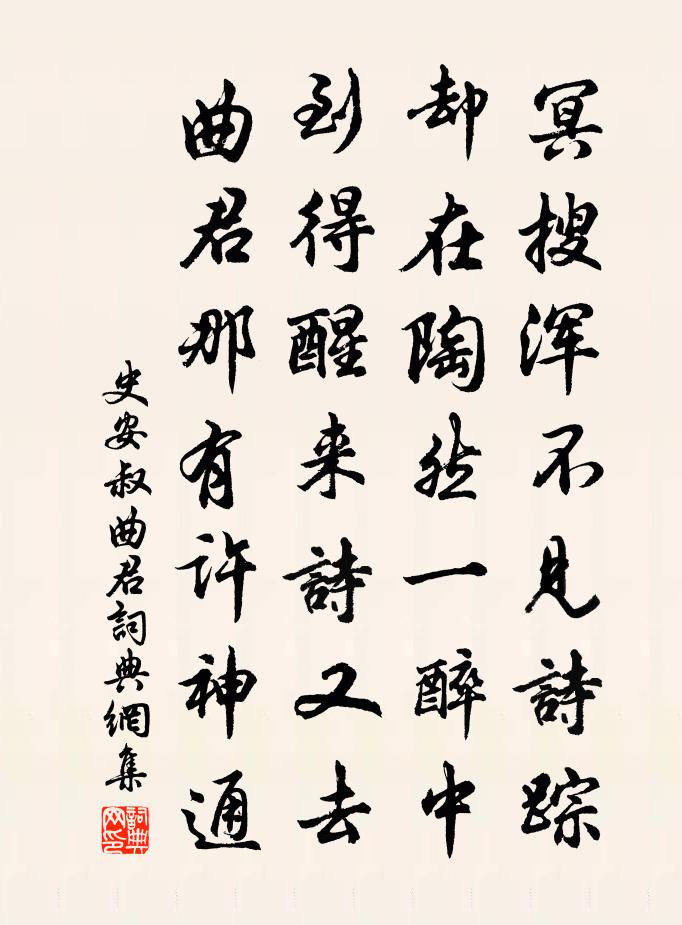 冥搜浑不见詩踪
却在陶然一醉中
到得醒来詩又去
曲君那有许神通
史安叔曲君詞典網集
詞典
网印